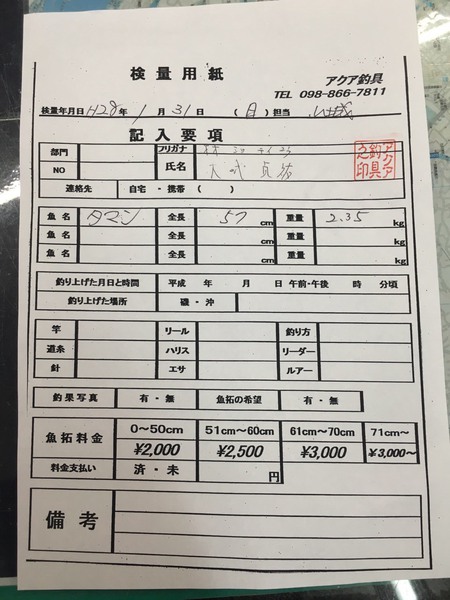 検量用紙
アクア釣具
TEL 098-866-7811
検量年月日 H28年 1月 31日 (日) 担当
記入要項
部門 フリガナ
NO 氏名 大武
アクア釣具之印
連絡先 自宅・携帯( )
魚名 タマン 全長 57 cm 重量 2.35 kg
魚名 全長 cm 重量 kg
魚名 全長 cm 重量 kg
釣り上げた月日と時間 平成 年 月 日 午前・午後 時 分頃
釣り上げた場所 磯・沖
竿 リール 釣り方
道糸 ハリス リーダー
針 エサ ルアー
釣果写真 有・無 魚拓の希望 有・無
魚拓料金 0～50cm 51cm～60cm 61cm～70cm 71cm～
¥2,000 ¥2,500 ¥3,000 ¥3,000～
料金支払い 済・未 円
備考